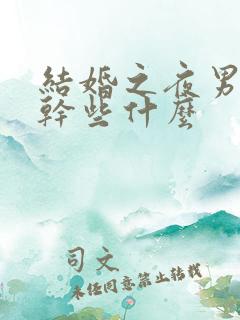 結婚之夜男
幹些什麼
司文
未經同意禁止轉載